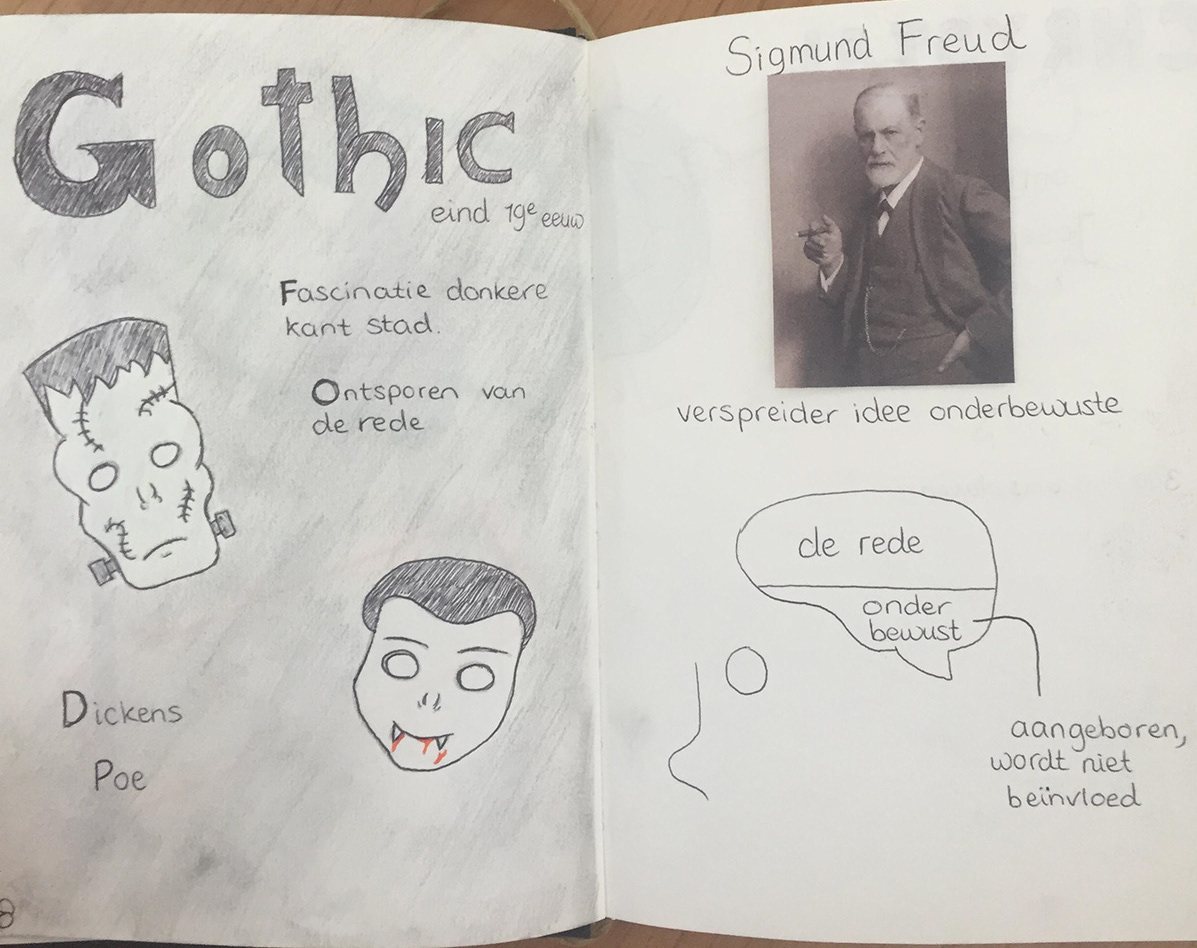 Gothic
eind 19e eeuw
Fascinatie donkere
kant stad.
Ontsporen van
de rede
Dickens
Poe
8
Sigmund Freud
verspreider idee onderbewuste
de rede
onder
bewust
aangeboren,
wordt niet
beïnvloed